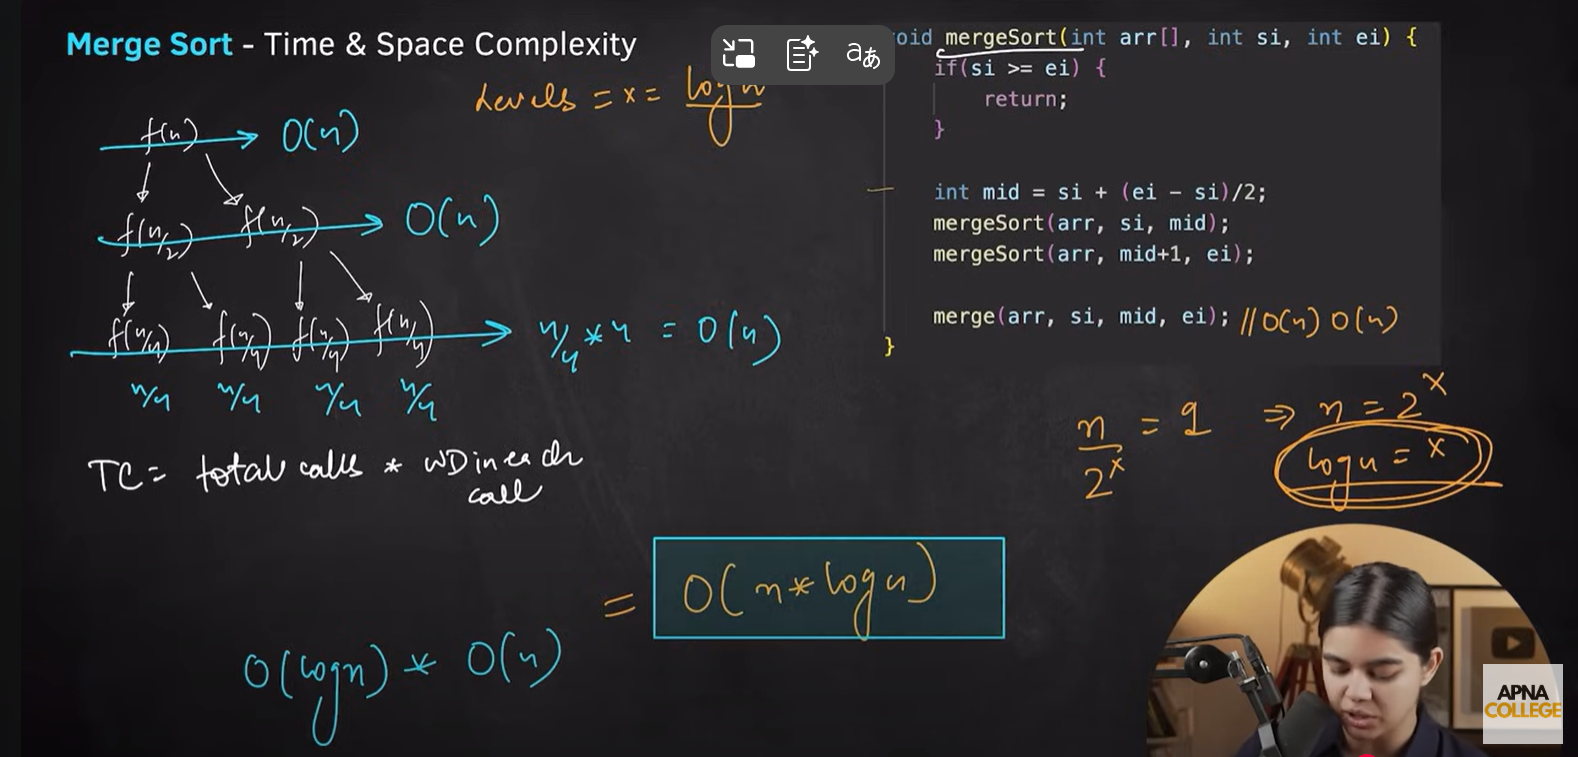 Merge Sort - Time & Space Complexity
Levels = x = log n
f(n) O(n)
f(n/2) f(n/2) O(n)
f(n/4) f(n/4) f(n/4) f(n/4) n/4 * 4 = O(n)
n/4 n/4 n/4 n/4
TC = total calls * WD in each
call
= O(n * log n)
O(log n) * O(n)
oid mergeSort(int arr[], int si, int ei) {
if(si >= ei) {
return;
}
int mid = si + (ei - si)/2;
mergeSort(arr, si, mid);
mergeSort(arr, mid+1, ei);
merge(arr, si, mid, ei); // O(n) O(n)
}
n/2^x = 1 ⇒ n = 2^x
log n = x
aあ
APNA
COLLEGE